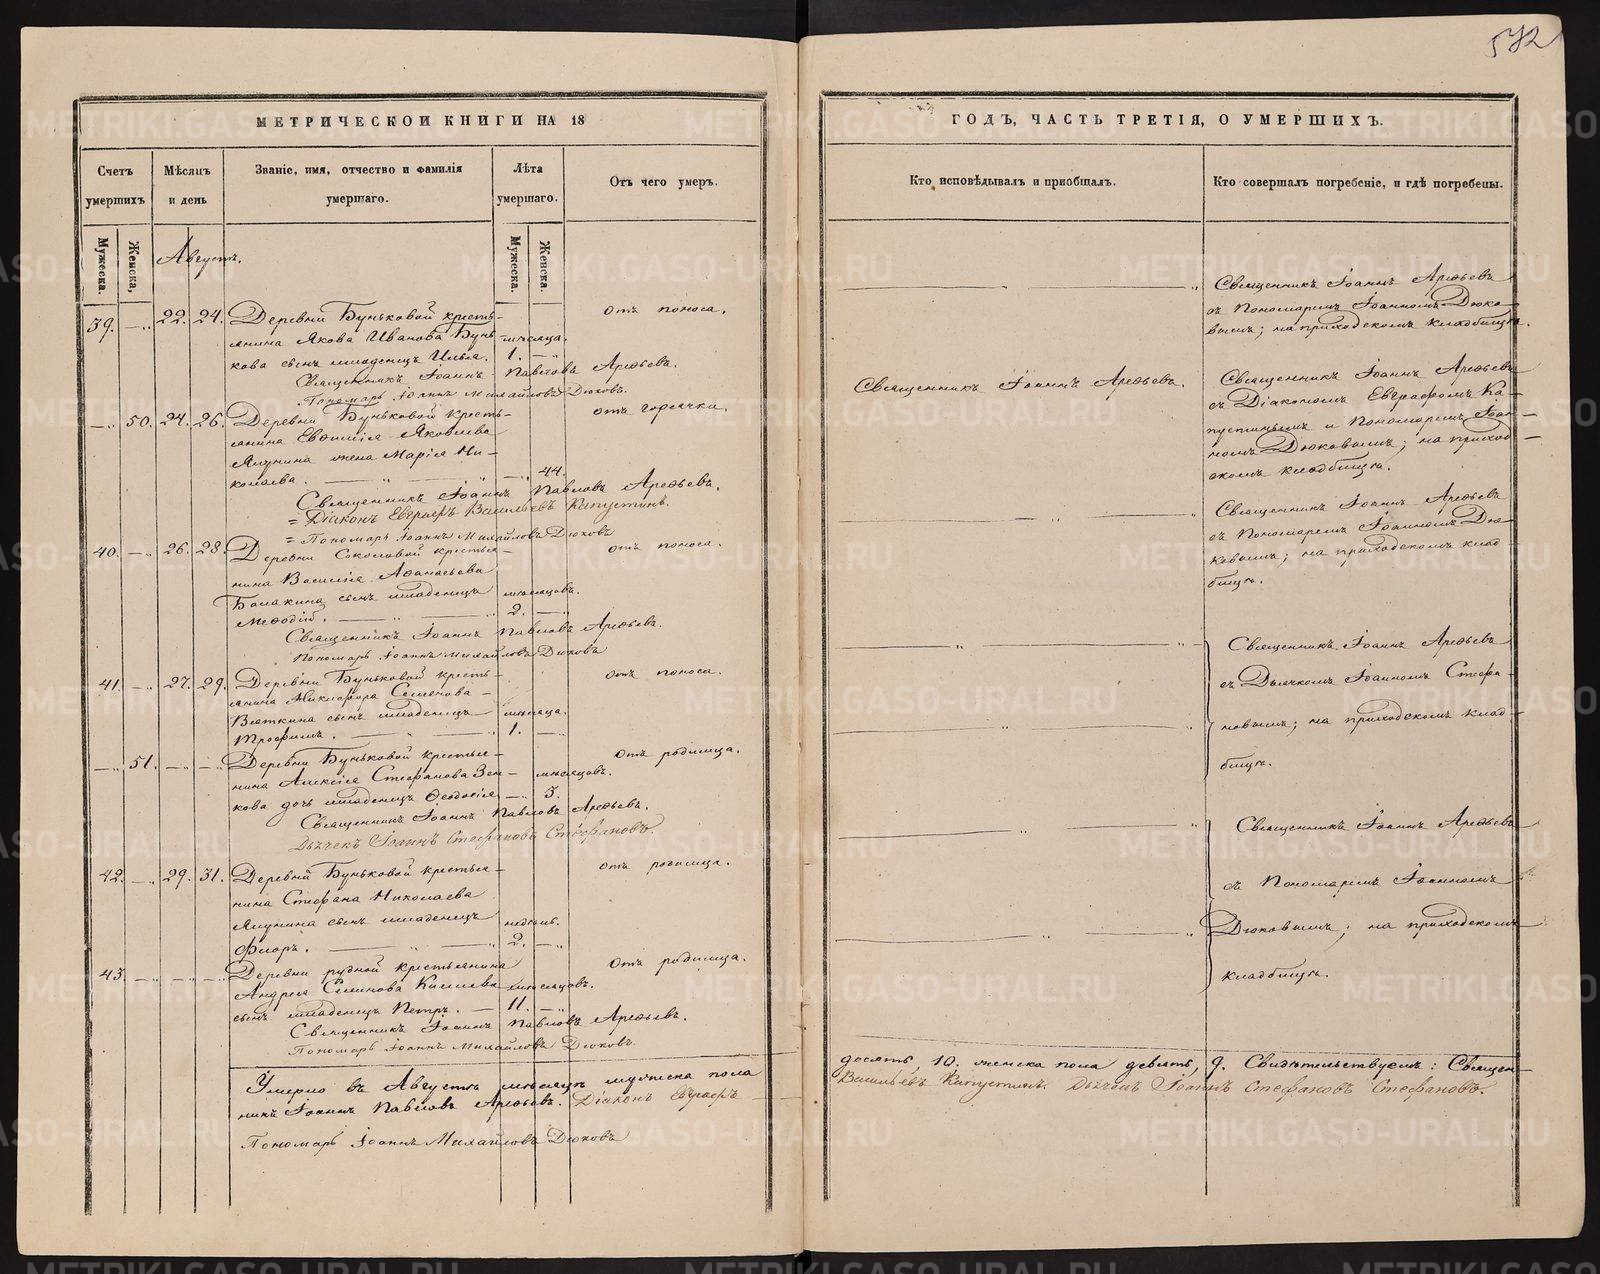 572
МЕТРИЧЕСКОЙ КНИГИ НА 18
ГОДЪ, ЧАСТЬ ТРЕТІЯ, О УМЕРШИХЪ.
Счетъ умершихъ
Мѣсяцъ и день
Званіе, имя, отчество и фамилія умершаго.
Лѣта умершаго.
Отъ чего умеръ.
Кто исповѣдывалъ и пріобщалъ.
Кто совершалъ погребеніе, и гдѣ погребены.
Мужеска.
Женска,
Мужеска.
Женска.
Августъ.
39. — 22. 24. Деревни Буньковой кресть- отъ поноса.
янина Якова Иванова Бунь- мѣсяца.
кова сынъ младенецъ Илья. 1. —
Священникъ Іоаннъ Павловъ Арефьевъ.
Пономарь Іоаннъ Михайловъ Дюковъ.
Священникъ Іоаннъ Арефьевъ
съ Пономаремъ Іоанномъ Дюко-
вымъ; на приходскомъ кладбищѣ.
— 50. 24. 26. Деревни Буньковой кресть- отъ горячки.
янина Евѳимія Яковлева
Ялунина жена Марія Ни-
колаева. — 44.
Священникъ Іоаннъ Павловъ Арефьевъ.
= Діаконъ Евграфъ Васильевъ Капустинъ.
= Пономарь Іоаннъ Михайловъ Дюковъ
Священникъ Іоаннъ Арефьевъ.
Священникъ Іоаннъ Арефьевъ
съ Діакономъ Евграфомъ Ка-
пустинымъ и Пономаремъ Іоан-
номъ Дюковымъ; на приход-
скомъ кладбищѣ.
40. — 26. 28. Деревни Соколовой крестья- отъ поноса.
нина Василія Аѳанасьева
Балакина сынъ младенецъ мѣсяцовъ.
Меѳодій. — 2. —
Священникъ Іоаннъ Павловъ Арефьевъ.
Пономарь Іоаннъ Михайловъ Дюковъ
Священникъ Іоаннъ Арефьевъ
съ Пономаремъ Іоанномъ Дю-
ковымъ; на приходскомъ клад-
бищѣ.
41. — 27. 29. Деревни Буньковой кресть- отъ поноса.
янина Никифора Семенова
Вяткина сынъ младенецъ мѣсяца.
Трофимъ. — 1. —
— 51. — — Деревни Буньковой крестья- отъ родимца.
нина Алексія Стефанова Зен- мѣсяцовъ.
кова дочь младенецъ Ѳеодосія — 3.
Священникъ Іоаннъ Павловъ Арефьевъ.
Дьячекъ Іоаннъ Стефановъ Стефановъ.
Священникъ Іоаннъ Арефьевъ
съ Дьячкомъ Іоанномъ Стефа-
новымъ; на приходскомъ клад-
бищѣ.
42. — 29. 31. Деревни Буньковой крестья- отъ родимца.
нина Стефана Николаева
Ялунина сынъ младенецъ недѣль.
Флоръ. — 2. —
43. — — — Деревни рудной крестьянина отъ родимца.
Андрея мѣсяцовъ.
сынъ младенецъ Петръ. — 11. —
Священникъ Іоаннъ Павловъ Арефьевъ.
Пономарь Іоаннъ Михайловъ Дюковъ
Священникъ Іоаннъ Арефьевъ
съ Пономаремъ Іоанномъ
Дюковымъ; на приходскомъ
кладбищѣ.
Умерло въ Августѣ мѣсяцѣ мужеска пола десять, 10. женска пола девять, 9. Свидѣтельствуемъ: Священ-
никъ Іоаннъ Павловъ Арефьевъ. Діаконъ Евграфъ Васильевъ Капустинъ. Дьячекъ Іоаннъ Стефановъ Стефановъ.
Пономарь Іоаннъ Михайловъ Дюковъ
METRIKI.GASO-URAL.RU